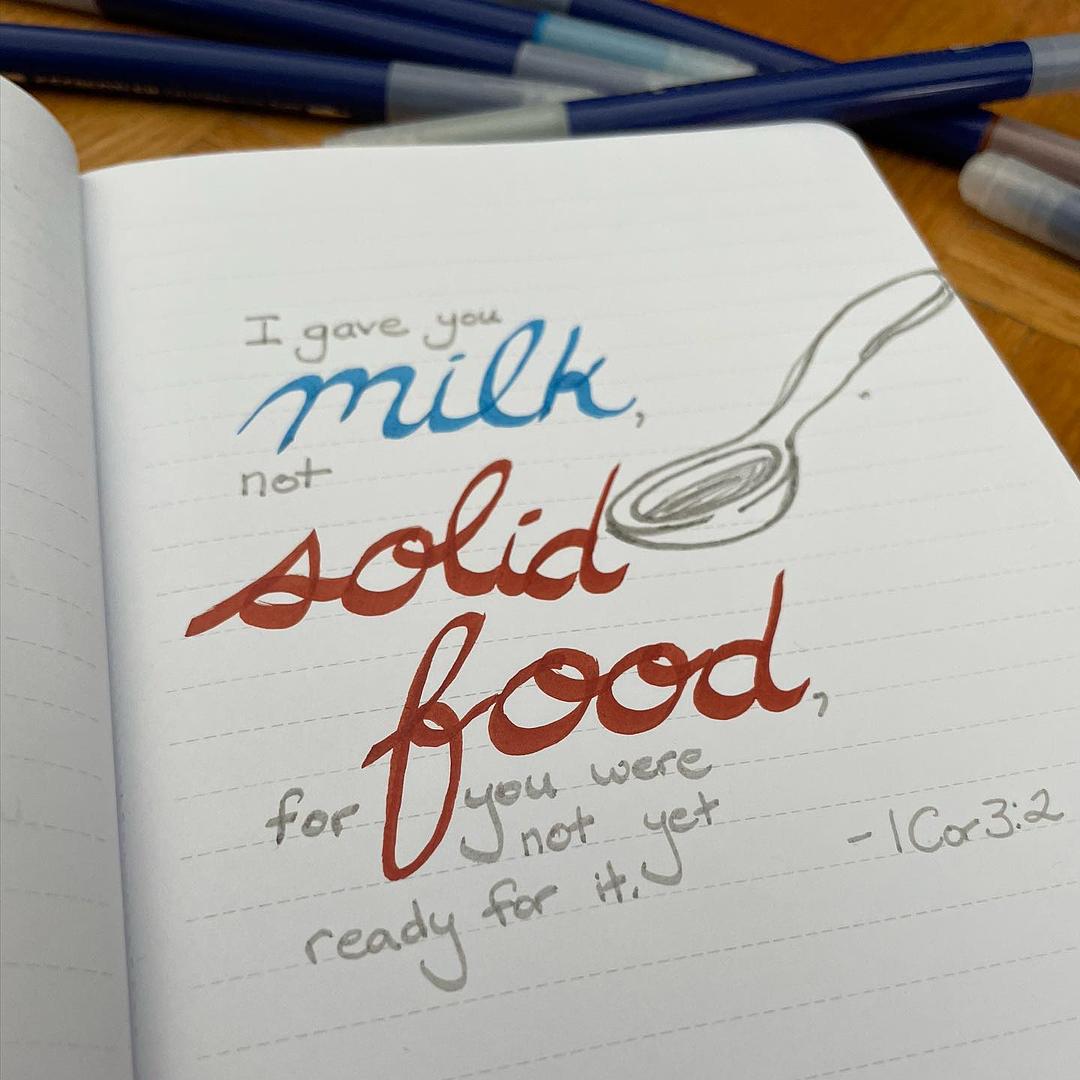 I gave you
milk,
not
solid
food,
for you were
not yet
ready for it.
- 1 Cor 3:2